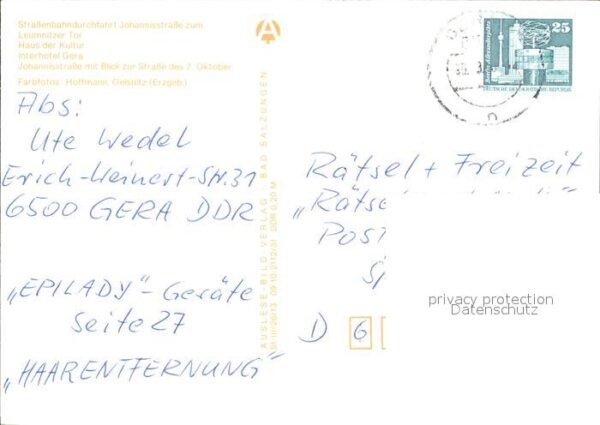 Straßenbahndurchfahrt Johannisstraße zum
Leumnitzer Tor
Haus der Kultur
Interhotel Gera
Johannisstraße mit Blick zur Straße des 7. Oktober
Farbfotos: Hoffmann, Oelsnitz (Erzgeb.)
Abs:
Ute Wedel
Erich-Weinert-Str. 31
6500 GERA DDR
„EPILADY"-Geräte
Seite 27
„HAARENTFERNUNG"
AUSLESE-BILD-VERLAG · BAD SALZUNGEN
DDR 0,20 M
25
DEUTSCHE DEMOKRATISCHE REPUBLIK
Rätsel + Freizeit
„Rätse
POST
D 6
privacy protection
Datenschutz